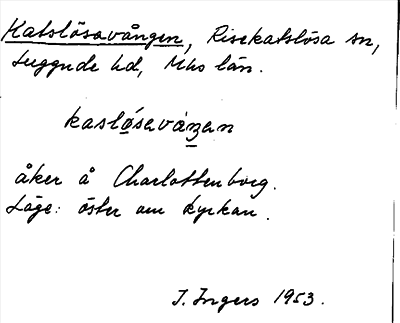 Katslösavången, Risekatslösa sn,
Luggude hd, Mhs län.
kaslösavåŋan
åker å Charlottenborg.
Läge: öster om kyrkan.
I. Ingers 1953.